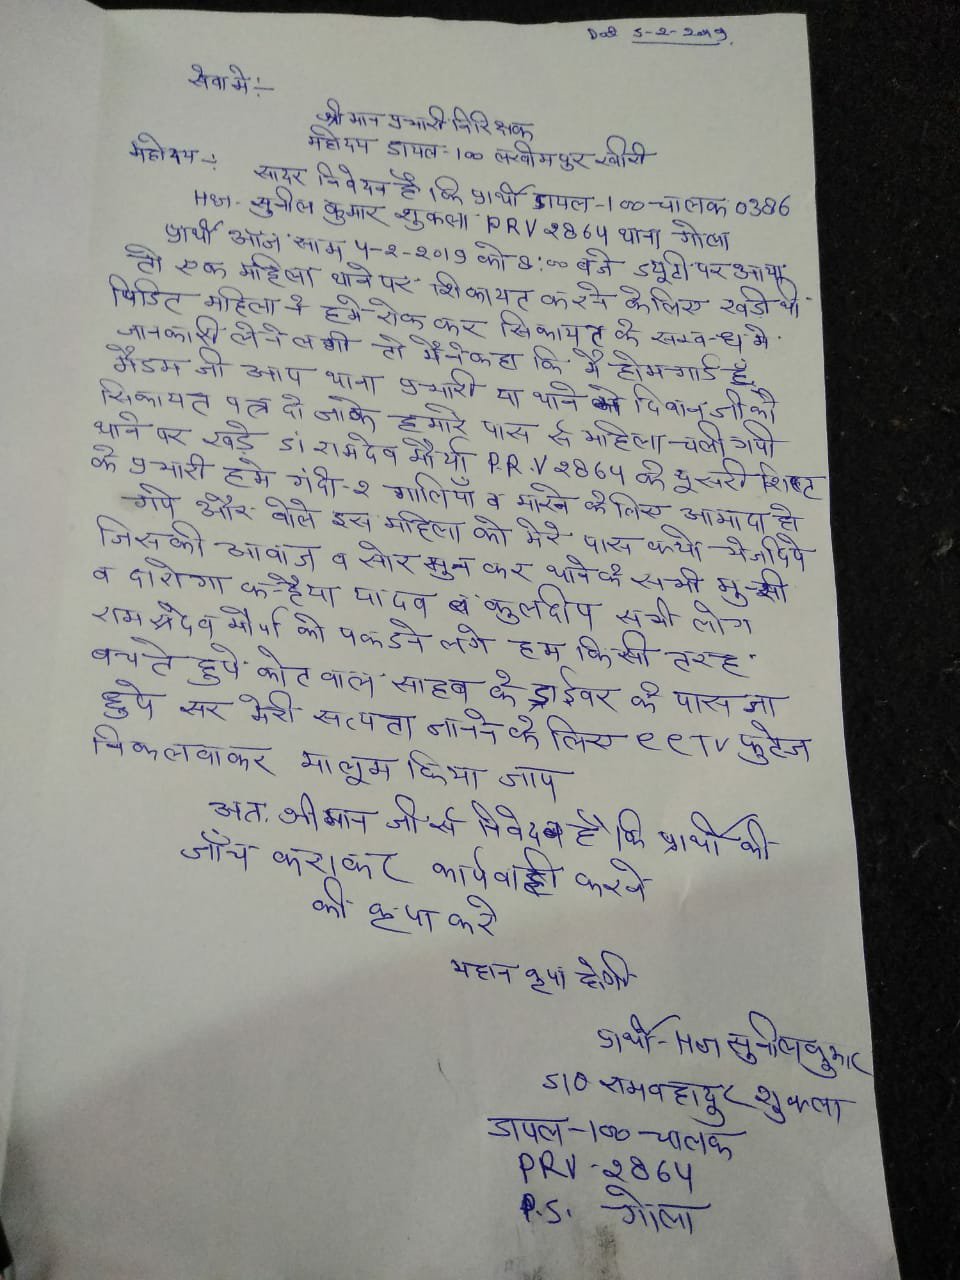 Date 5-2-2019
सेवा मे:-
श्री मान प्रभारी निरिक्षक
महोदय डायल-100 लखीमपुर खीरी
महोदय:-
सादर निवेदन है कि प्रार्थी डायल-100 चालक 0386
HG. सुनील कुमार शुकला PRV 2864 थाना गोला
प्रार्थी आज साम 4-2-2019 को 8:00 बजे ड्यूटी पर आया
तो एक महिला थाने पर शिकायत करने के लिए खड़ी थी
पिडित महिला ने हमे रोक कर सिकायत के सम्बन्ध मे
जानकारी लेने लगी तो मैने कहा कि मै होमगार्ड हूँ
मैडम जी आप थाना प्रभारी या थाने के दिवान जी को
सिकायत पत्र दो जाके हमारे पास से महिला चली गयी
थाने पर खड़े SI रामदेव मौर्या P.R.V 2864 की दूसरी शिफ्ट
के प्रभारी हमे गंदी-2 गालियाँ व मारने के लिए आमादा हो
गये और बोले इस महिला को मेरे पास क्यो भेज दिये
जिसकी आवाज व सोर सुन कर थाने के सभी मुन्सी
व दारोगा कन्हैया यादव व कुलदीप सभी लोग
राम देव मौर्या को पकडने लगे हम किसी तरह
बचते हुये कोटवाल साहब के ड्राईवर के पास जा
छुपे सर मेरी सत्यता जानने के लिए CCTV फुटेज
निकलवाकर मालूम किया जाय
अत. श्री मान जी से निवेदन है कि प्रार्थी की
जाँच कराकर कार्यवाही करने
की कृपा करे
महान कृपा होगी
प्रार्थी- HG सुनील कुमार
S/O रामबहादुर शुकला
डायल-100 चालक
PRV-2864
P.S. गोला